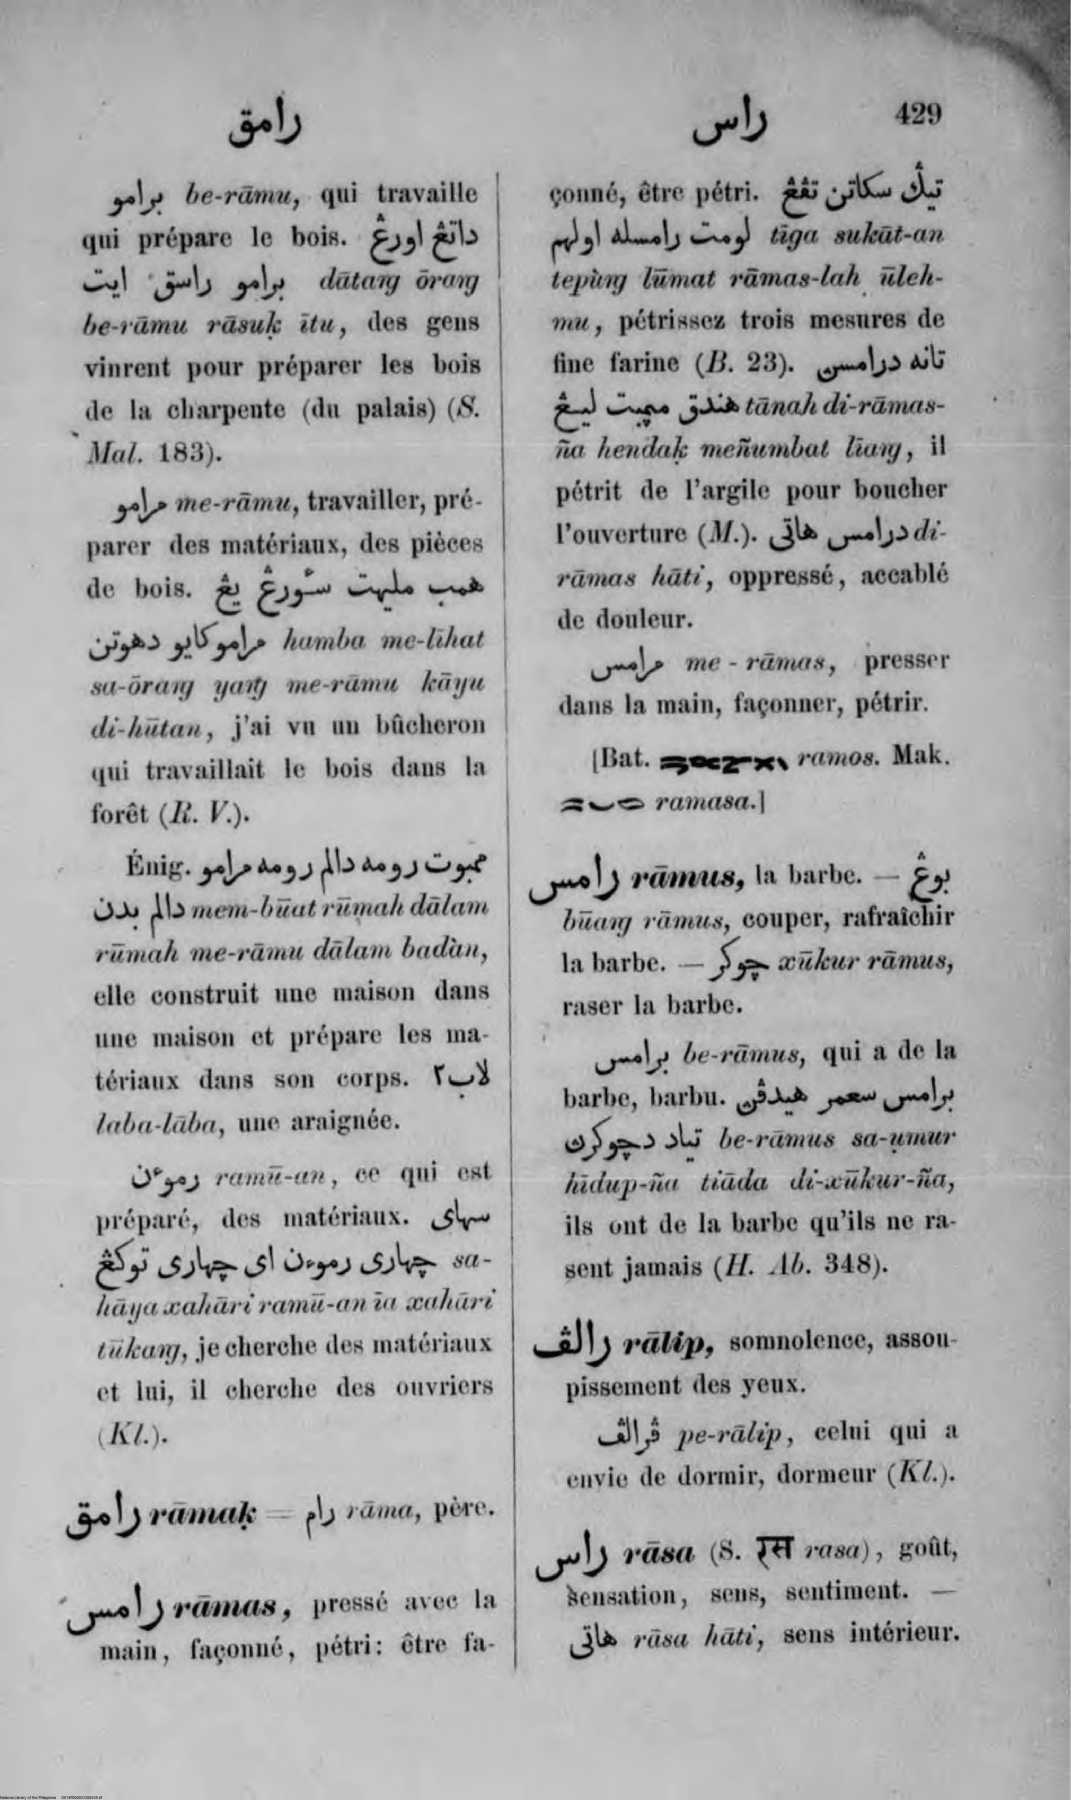 رامق
راس
429
برامو be-rāmu, qui travaille
qui prépare le bois. داتڠ اورڠ
برامو راسق ايت dātaŋ ōraŋ
be-rāmu rāsuḳ ītu, des gens
vinrent pour préparer les bois
de la charpente (du palais) (S.
Mal. 183).
مرامو me-rāmu, travailler, pré-
parer des matériaux, des pièces
de bois. همب مليهت سٔورڠ يڠ
مرامو كايو دهوتن hamba me-līhat
sa-ōraŋ yaŋ me-rāmu kāyu
di-hūtan, j'ai vu un bûcheron
qui travaillait le bois dans la
forêt (R. V.).
Énig. ممبوت رومه دالم رومه مرامو
دالم بدن mem-būat rūmah dālam
rūmah me-rāmu dālam badàn,
elle construit une maison dans
une maison et prépare les ma-
tériaux dans son corps. لاب٢
laba-lāba, une araignée.
رموءن ramū-an, ce qui est
préparé, des matériaux. سهاى
چهارى رموءن اى چهارى توكڠ sa-
hāya xahāri ramū-an īa xahāri
tūkaŋ, je cherche des matériaux
et lui, il cherche des ouvriers
(Kl.).
رامق rāmaḳ = رام rāma, père.
رامس rāmas, pressé avec la
main, façonné, pétri: être fa-
çonné, être pétri. تيݢ سكاتن تڤڠ
لومت رامسله اولهم tīga sukāt-an
tepùŋ lūmat rāmas-lah ūleh-
mu, pétrissez trois mesures de
fine farine (B. 23). تانه درامسن
هندق مڽمبت ليڠ tānah di-rāmas-
ña hendaḳ meñumbat līaŋ, il
pétrit de l'argile pour boucher
l'ouverture (M.). درامس هاتى di-
rāmas hāti, oppressé, accablé
de douleur.
مرامس me-rāmas, presser
dans la main, façonner, pétrir.
[Bat. ramos. Mak.
ramasa.]
رامس rāmus, la barbe. — بوڠ
būaŋ rāmus, couper, rafraîchir
la barbe. — چوكر xūkur rāmus,
raser la barbe.
برامس be-rāmus, qui a de la
barbe, barbu. برامس سعمر هيدڤن
تياد دچوكرن be-rāmus sa-ụmur
hīdup-ña tiāda di-xūkur-ña,
ils ont de la barbe qu'ils ne ra-
sent jamais (H. Ab. 348).
رالڤ rālip, somnolence, assou-
pissement des yeux.
ڤرالڤ pe-rālip, celui qui a
envie de dormir, dormeur (Kl.).
راس rāsa (S. रस rasa), goût,
sensation, sens, sentiment. —
هاتى rāsa hāti, sens intérieur.